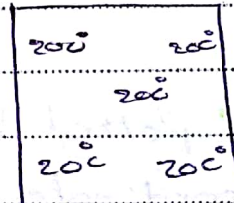 20c° 20c°
20c°
20c° 20c°